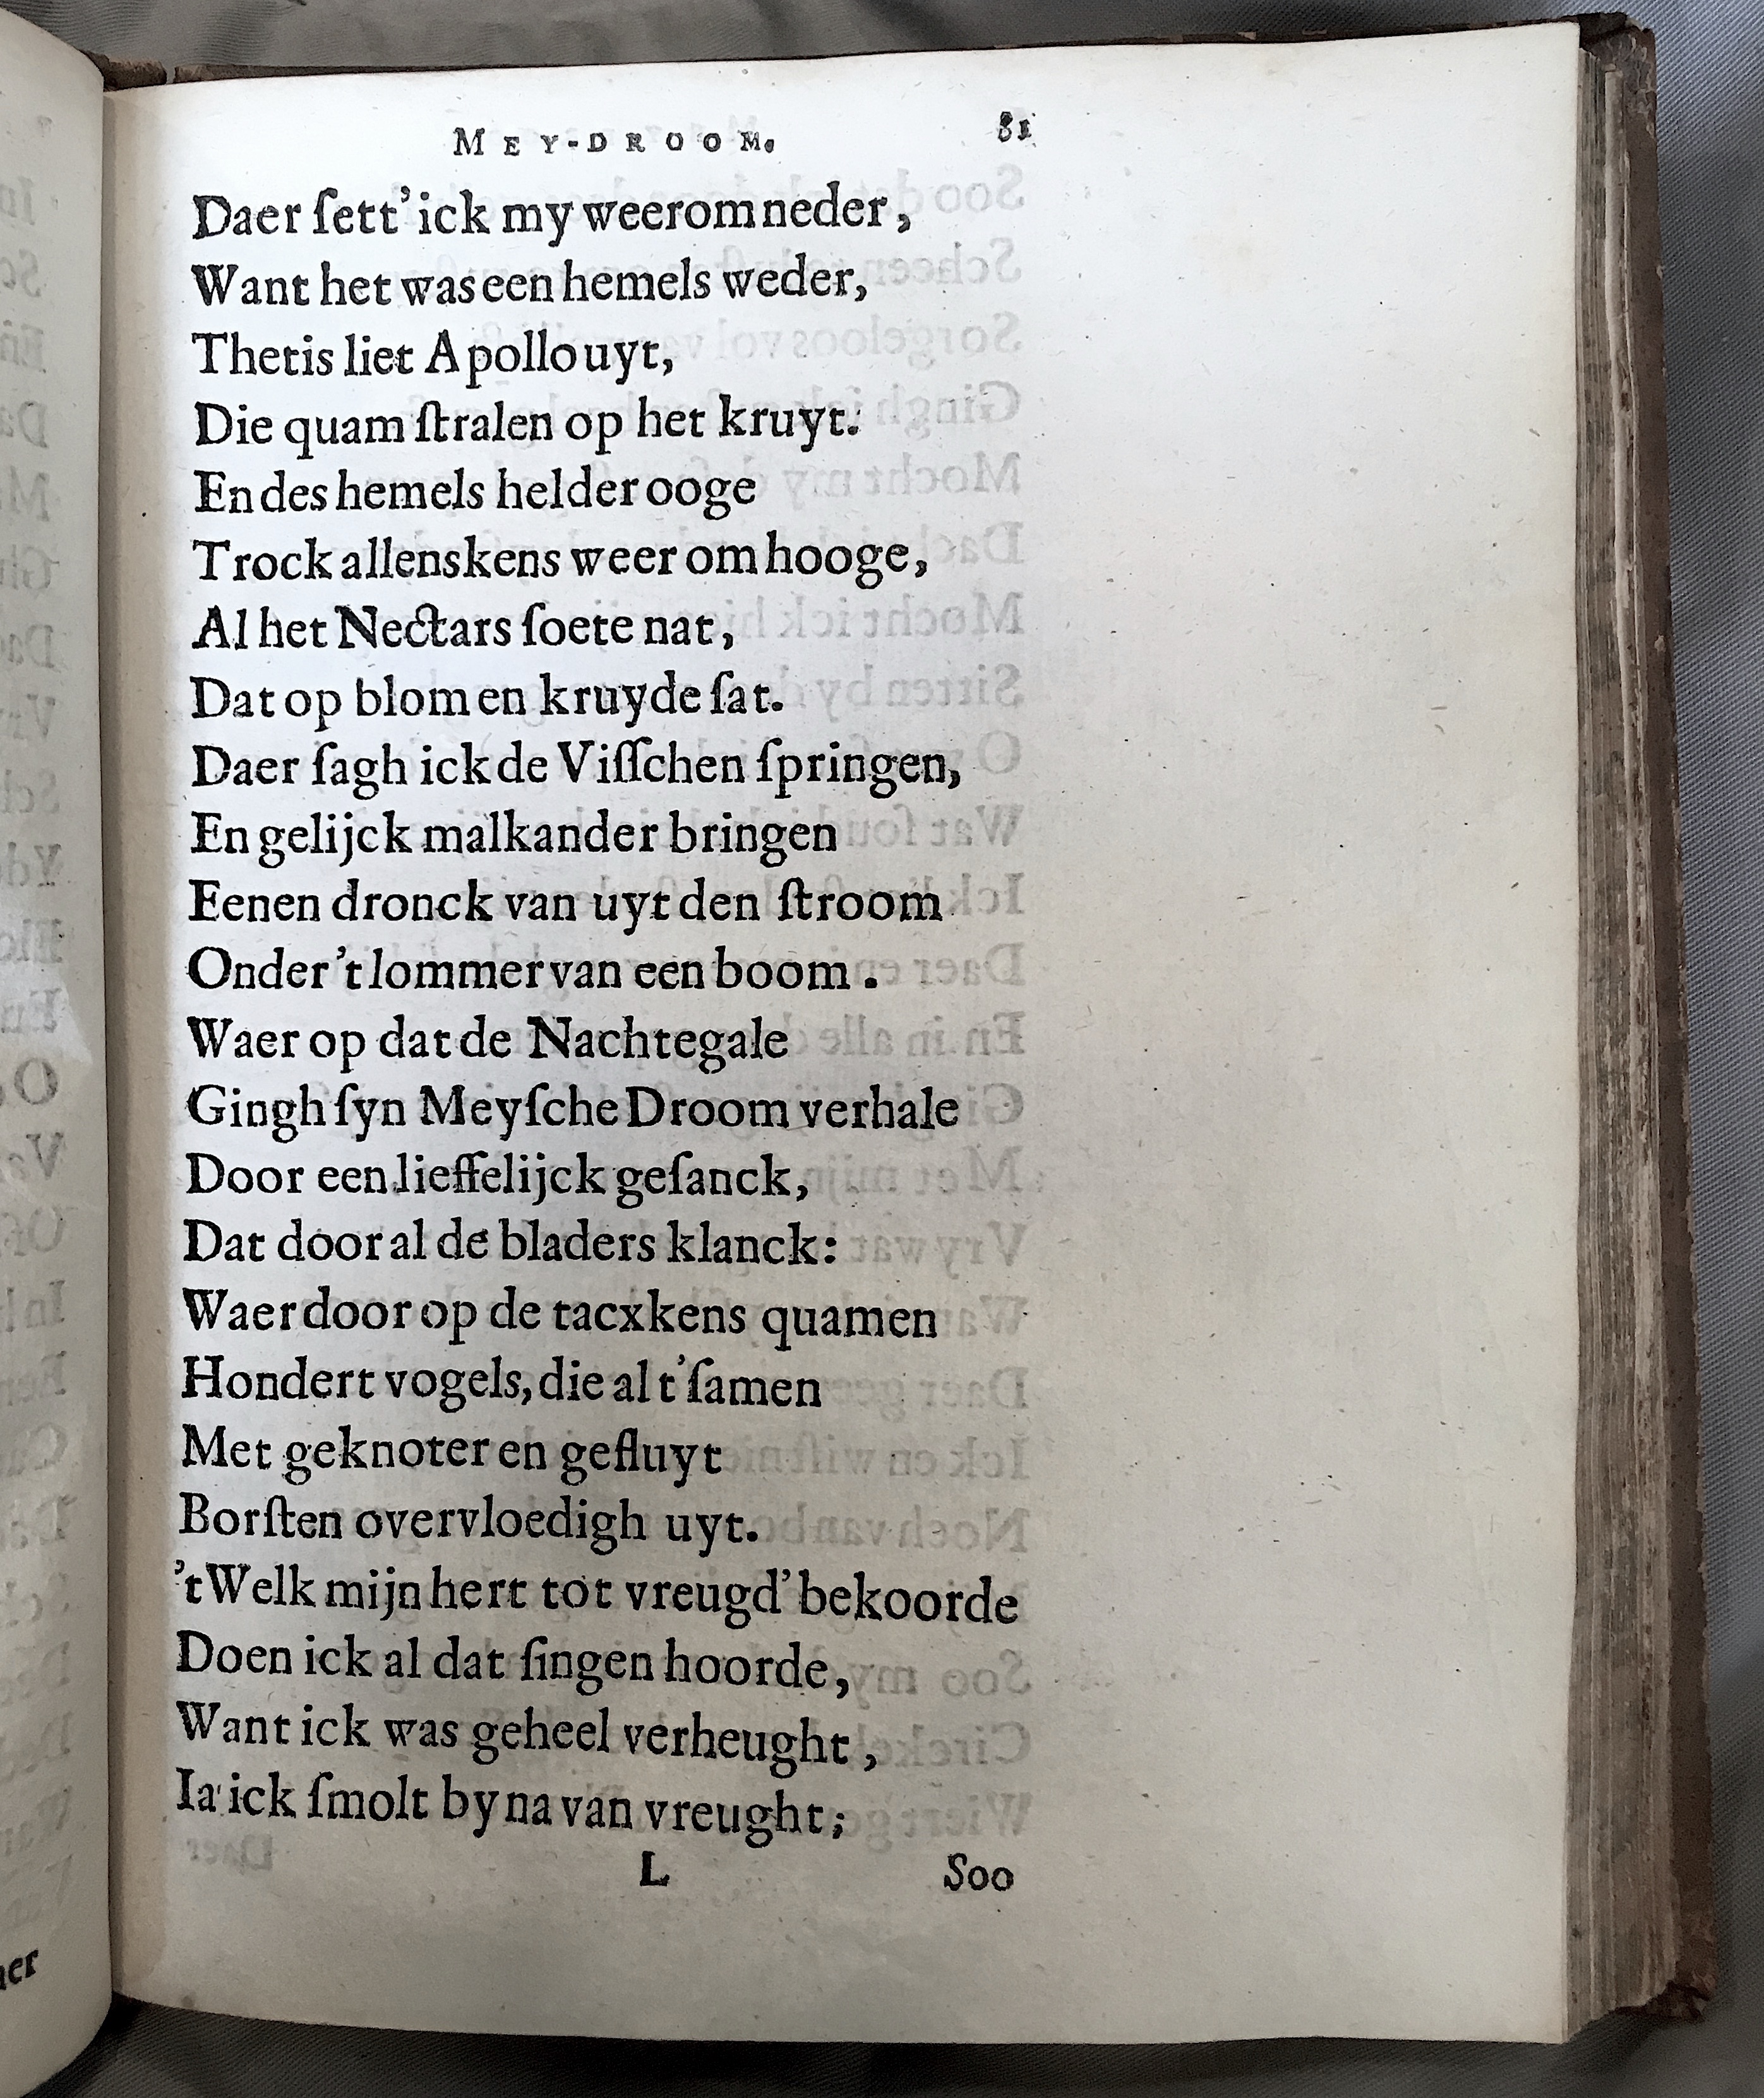 MEY-DROOM. 81
Daer ſett' ick my weerom neder,
Want het was een hemels weder,
Thetis liet Apollo uyt,
Die quam ſtralen op het kruyt.
En des hemels helder ooge
Trock allenskens weer om hooge,
Al het Nectars ſoete nat,
Dat op blom en kruyde ſat.
Daer ſagh ick de Viſſchen ſpringen,
En gelijck malkander bringen
Eenen dronck van uyt den ſtroom
Onder 't lommer van een boom.
Waer op dat de Nachtegale
Gingh ſyn Meyſche Droom verhale
Door een lieffelijck geſanck,
Dat door al de bladers klanck:
Waer door op de tacxkens quamen
Hondert vogels, die al t'ſamen
Met geknoter en gefluyt
Borſten overvloedigh uyt.
't Welk mijn hert tot vreugd' bekoorde
Doen ick al dat ſingen hoorde,
Want ick was geheel verheught,
Ia ick ſmolt by na van vreught;
L Soo